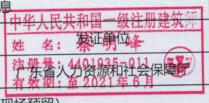 息
中华人民共和国一级注册建筑师
发证单位
姓名：蔡明峰
注册号：4401935-011
广东省人力资源和社会保障厅
有效期：至2021年6月